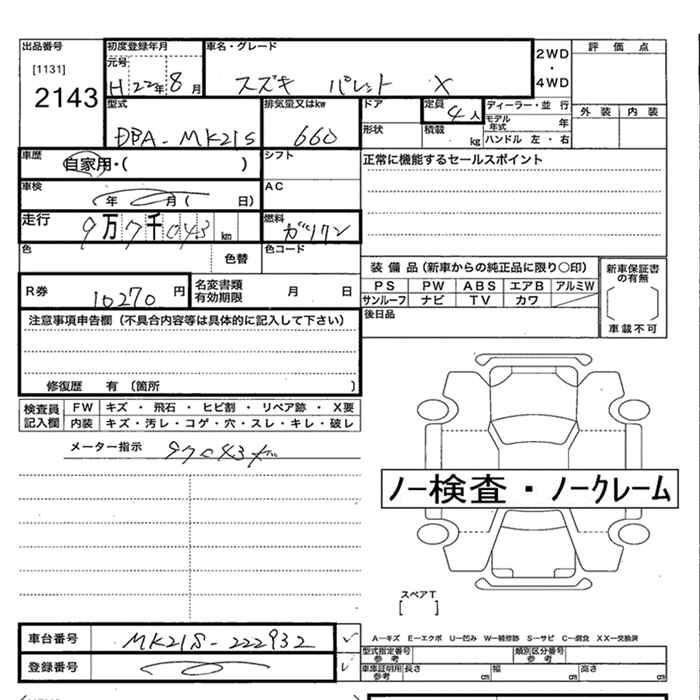 出品番号 初度登録年月 車名・グレード 2WD 評価点
[1131] 元号 ・
2143 H 22年 8月 スズキ パレット X 4WD
型式 排気量又はkw ドア 定員 ディーラー・並行 外装 内装
4人 モデル年式 年
DBA-MK21S 660 形状 積載 kg ハンドル 左・右
車歴 自家用・( ) シフト 正常に機能するセールスポイント
車検 年 月( 日) AC
走行 9万7千043km 燃料 ガソリン
色 色替 色コード
装備品(新車からの純正品に限り○印) 新車保証書の有無
R券 10270円 名変書類有効期限 月 日 PS PW ABS エアB アルミW
サンルーフ ナビ TV カワ
注意事項申告欄(不具合内容等は具体的に記入して下さい) 後日品 車載不可
修復歴 有〔箇所 〕
検査員記入欄 FW キズ・飛石・ヒビ割・リペア跡・X要
内装 キズ・汚レ・コゲ・穴・スレ・キレ・破レ
メーター指示 97043km
ノー検査・ノークレーム
スペアT
[ ]
車台番号 MK21S-222932 A-キズ E-エクボ U-凹み W-補修跡 S-サビ C-腐食 XX-交換済
型式指定番号参考 類別区分番号参考
登録番号 車庫証明用参考 長さ cm 幅 cm 高さ cm